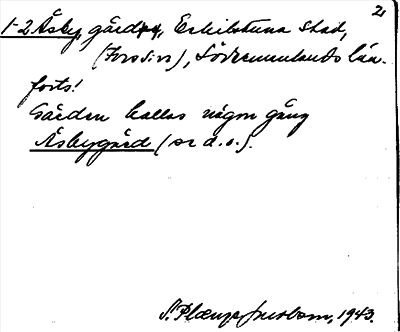 2.
1-2 Åsby, gård, Eskilstuna stad,
(Fors sn), Södermanlands län.
forts!
Gården kallas någon gång
Åsbygård (se d.o.).
S. Plænge Jacobson, 1943.